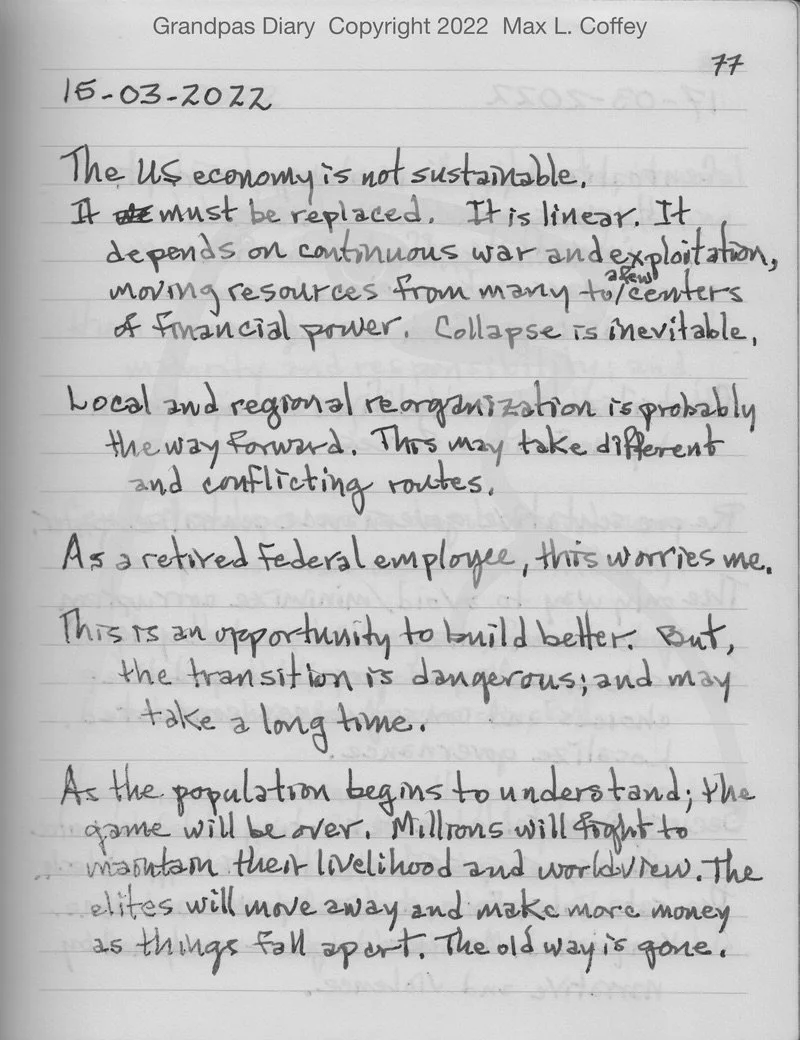 Grandpas Diary Copyright 2022 Max L. Coffey
77
15-03-2022
The US economy is not sustainable.
It must be replaced. It is linear. It
depends on continuous war and exploitation,
moving resources from many to a few centers
of financial power. Collapse is inevitable.
Local and regional reorganization is probably
the way forward. This may take different
and conflicting routes.
As a retired federal employee, this worries me.
This is an opportunity to build better. But,
the transition is dangerous; and may
take a long time.
As the population begins to understand; the
game will be over. Millions will fight to
maintain their livelihood and worldview. The
elites will move away and make more money
as things fall apart. The old way is gone.